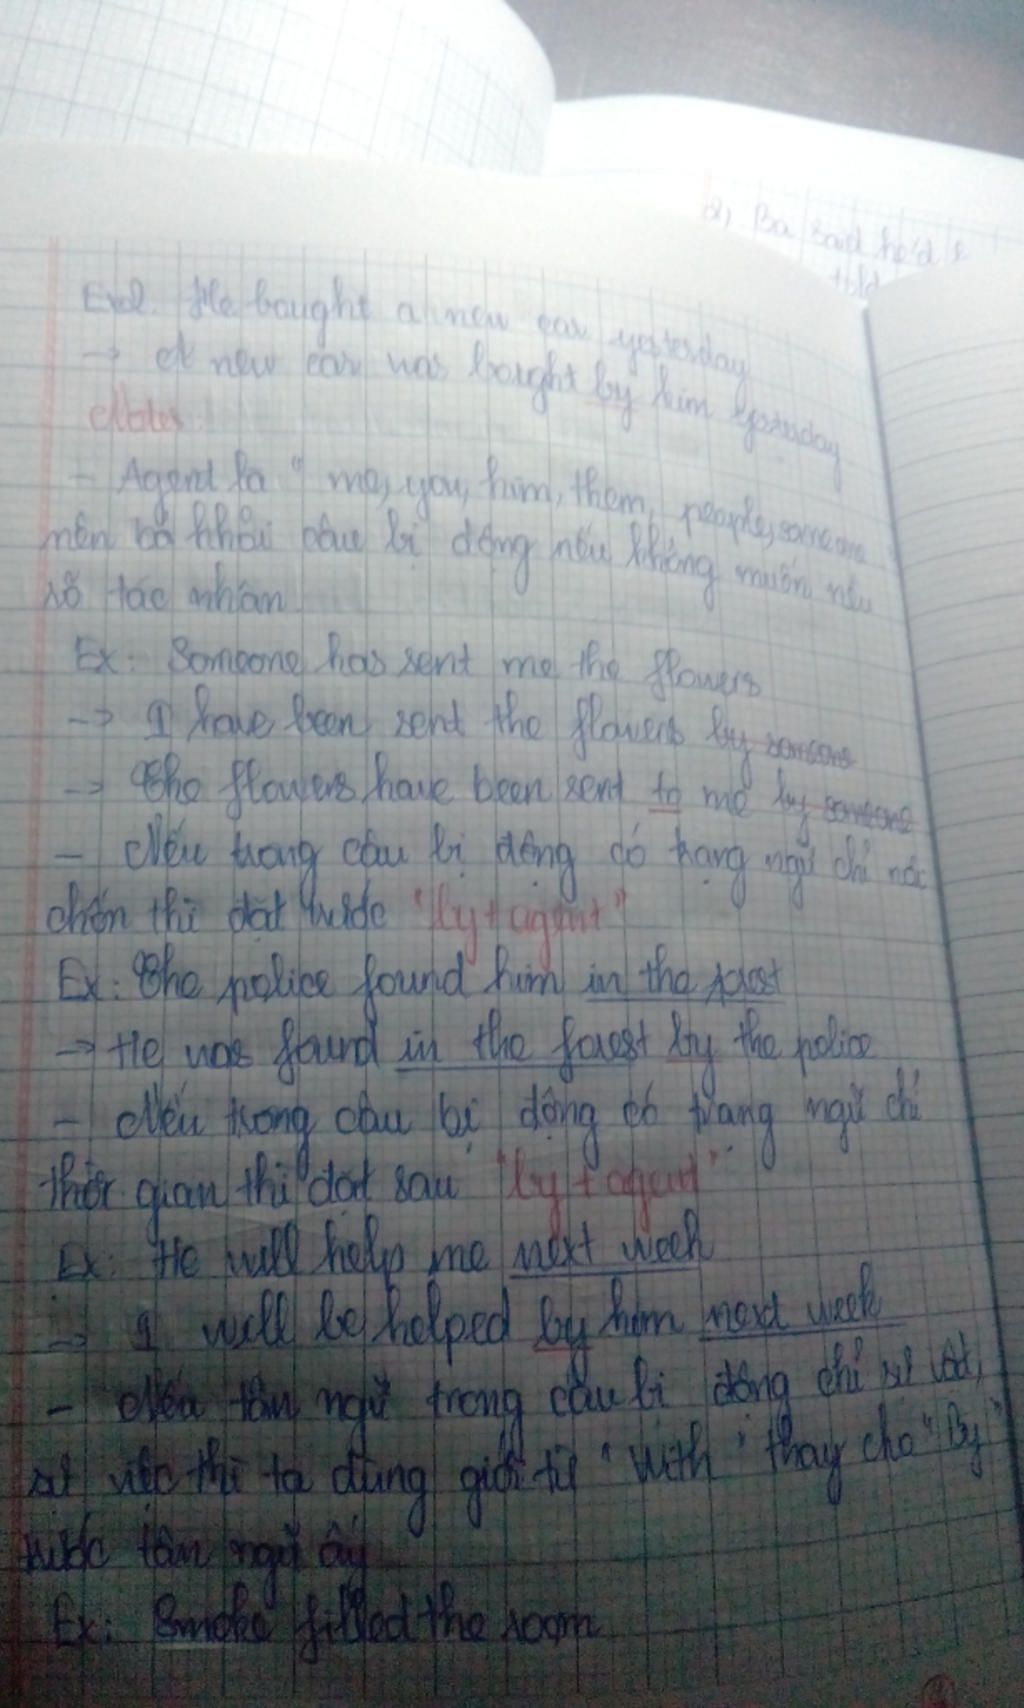 2, Ba said he'd
told
Ex2. He bought a new car yesterday
→ A new car was bought by him yesterday
Notes
- Agent là " me, you, him, them, people, someone
nên bỏ khỏi câu bị động nếu không muốn nêu
rõ tác nhân
Ex: Someone has sent me the flowers
→ I have been sent the flowers by someone
→ The flowers have been sent to me by someone
- Nếu trong câu bị động có trạng ngữ chỉ nơi
chốn thì đặt trước "by + agent"
Ex: The police found him in the forest
→ He was found in the forest by the police
- Nếu trong câu bị động có trạng ngữ chỉ
thời gian thì đặt sau "by + agent".
Ex: He will help me next week
→ I will be helped by him next week
- Nếu tân ngữ trong câu bị động chỉ sự vật,
sự việc thì ta dùng giới từ "with" thay cho "By"
trước tân ngữ ấy
Ex: Smoke filled the room